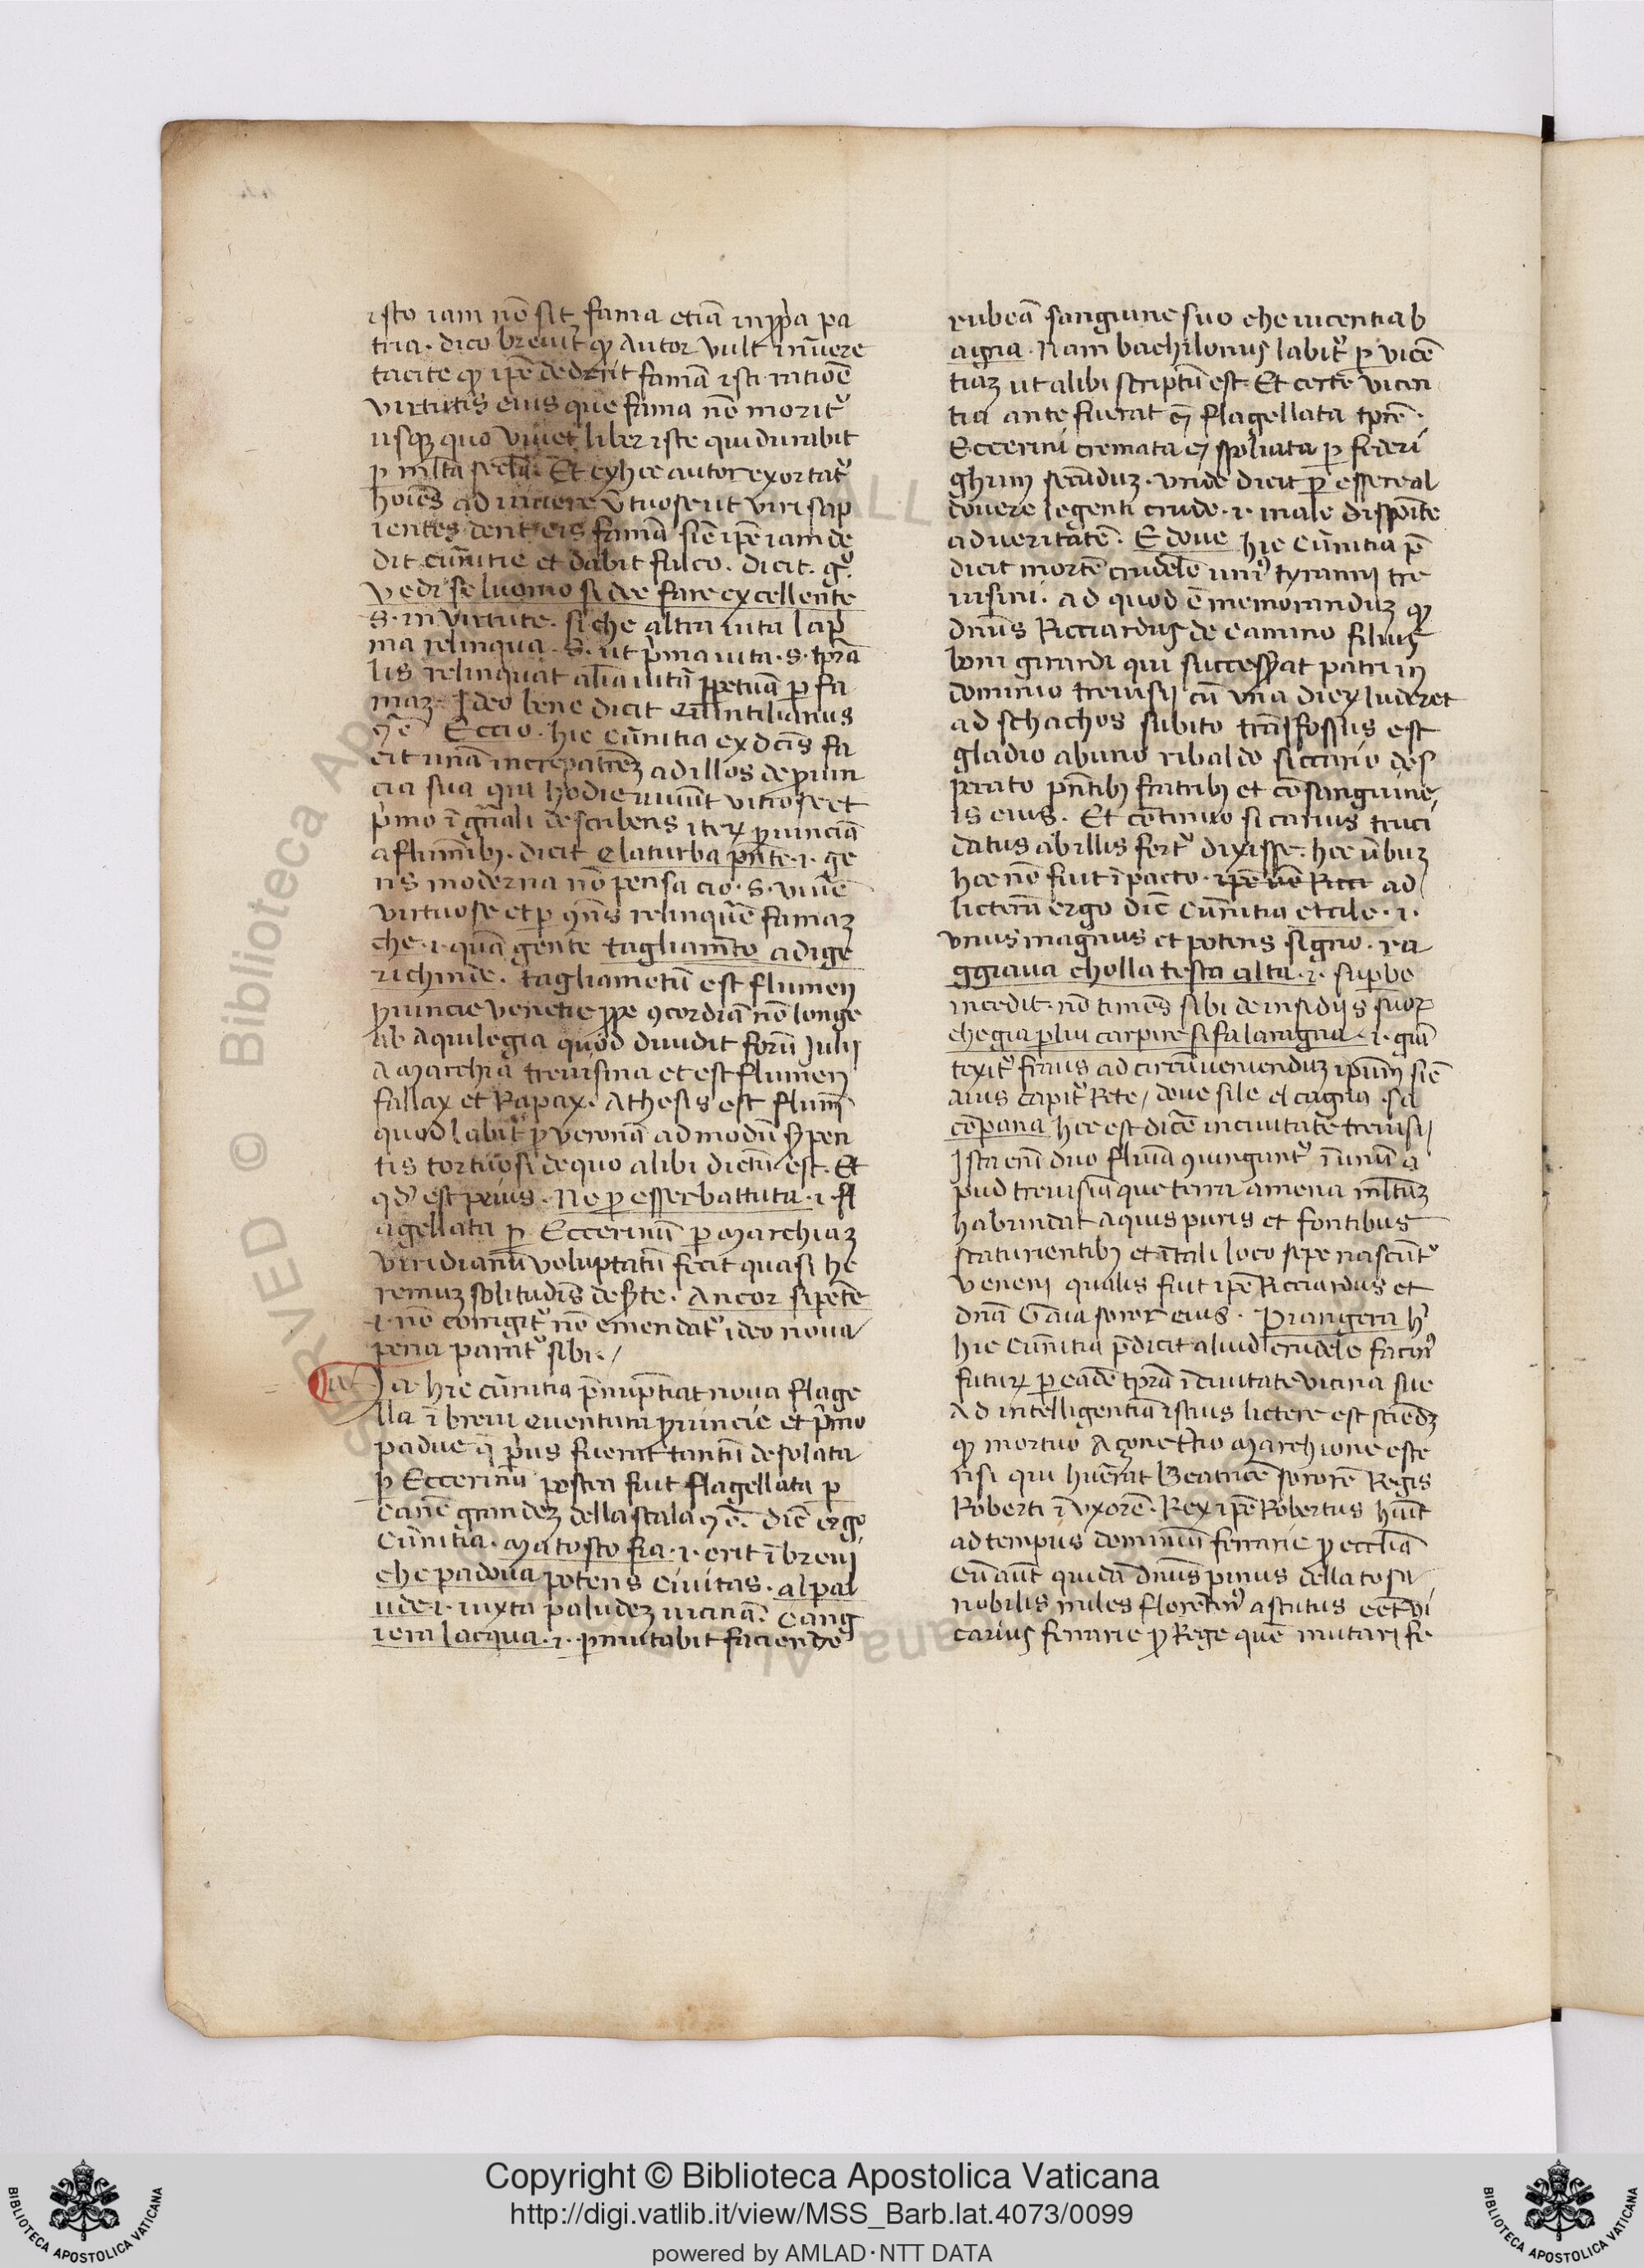 isto iam nō sit fama etiā in ppͥa pa
tria · dico breuit̃ qͥ Autor vult inͣuere
tacite qͥ ip̄e dederit famā isti ratiōe
virtutis eius que fama nō moritᷣ
usqȝ quo viuet liber iste qui durabit
p ml̃ta secl̃a · Et ex hͨ autor exortatᷣ
hoīes ad viuere v̓tuose ut viri sap
ientes dent eis famā sic̄ ip̄e iam de
dit cūnitie et dabit fulco . dicit . gͦ
vedi se luomo si dee fare excellente
s · in virtute · siche altra uita lap̓
ma relinqua · s · ut p̓ma uita · s · tp̄ra
lis relinquat alīa uitā ppetuā p fa
maȝ · Ideo bene dicit Quintilianus
Eccio · hic cūnitia ex dc̄is fa
cit unā increpatiōeȝ ad illos de pͦuin
cia sua qui hodie uiuūt vitiose et
p̓mo ī gn̄ali describens iteꝝ pͦuinciā
a fluminibꝫ . dicit E la turba p̄nte · i · ge
ns moderna nō pensa cio · s · viuē
virtuose et p 9n̄s relinquē famaȝ
che · i · quā gente tagliamēto adige
richiude · tagliametū est flumen
pͦuincie venetie ppe 9cordiā nō longe
ab Aquilegia quod diuidit forū Julij
A marchia treuisina et est flumen
fallax et Rapax · Athesis est flum̄
quod labitᷣ p veronā ad modū s̓pen
tis tortuosi de quo alibi dictū est · Et
qd̓ est peius · Ne p esser battuta · i · fl
agellata p Eccerinū p marchiaȝ
viridianū voluptatū fecit quasi he
remuȝ solitudīs des̓te · Ancor si pēte
i · nō corrigitᷣ nō emendatᷣ ideo noua
pena paratᷣ sibi · /
Ma · hic cūnitia p̄nuptiat noua flage
lla ī breui euentura pͦuincie et p̓mo
padue q̄ p̓us fuerat tantū desolata
p Eccerinū postea fuit flagellata p
Canē grandeȝ della scala 9 ē · dic̄ ergo
Cūnitia · Ma tosto fia · i · erit ī breuj
che padoua potens Ciuitas · al pal
ude · i · iuxta paludeȝ uicinā · Cang
iera lacqua · i · pmutabit faciendo
rubeā sanguine suo che uicentia b
agna · Nam bachilonus labitᷣ p vicē
tiaȝ ut alibi scriptū est · Et certe vicen
tia ante fuerat & flagellata tpr̄e ·
Eccerini cremata & spoliata p federi
ghum secūduȝ · vnde dicit p essere al
douere le genti crude · i · male disposite
ad ueritatē · E doue hic Cūnitia p̄
dicit mortē crudelē uniᷤ tyranni tre
uisini · ad quod ē memoranduȝ qͥ
dn̄us Ricciardus de camino filius
boni girardi qui successerat patri in
dominio treuisij cū vna dieꝝ luderet
ad schachos subito trāsfossus est
gladio ab uno ribaldo siccario des
perato p̄ntibꝫ fratribꝫ et cōsanguine
is eius · Et cōtinuo sicarius truci
datus ab illis fertᷣ dixisse · hec v̄buȝ
hec nō fuit ī pacto · ip̄e nō Ricci ad
licterā ergo dic̄ Cūnitia et tale · i ·
vnus magnus et potens signo · ra
ggiaua cholla testa alta · i · supbe
incedit · nō timēs sibi de insidijs suoꝝ
che gia plui carpire si fa laragna · i · quā
texitᷣ fraus ad circūueniendum ipsum sic̄
auis capitᷣ Rete / doue sile el cagna · sa
cōpana hec est dicē in ciuitate treuisij
Ista enī duo flumia 9iungūtᷣ ī unū a
pud treuisiā que terra amena ml̃tuȝ
habundat aquis puris et fontibus
scaturientibꝫ et ī tali loco sepe nascūtᷣ
venenj qualis fuit ip̄e Ricciardus et
dn̄a Gāia soror eius · Piangera hͥ
hic Cūnitia p̄dicit aliud crudele faciniᷤ
futuꝝ p eadē tp̄ra ī ciuitate vicina sue
Ad intelligentiā istius lictere est sciendȝ
qͥ mortuo Açone tͦtio marchione este
nsi qui hūerat Beatricē sororē Regis
Roberti ī vxorē · Rex ip̄e Robertus hūit
ad tempus dominiū ferrarie p ecclīā
Cū aut̄ quidā dn̄us pinus della tosa
nobilis miles florentinᷤ astutus eēt vi
carius ferrarie pͦ Rege quē mutari fe
Copyright © Biblioteca Apostolica Vaticana
http://digi.vatlib.it/view/MSS_Barb.lat.4073/0099
powered by AMLAD·NTT DATA
BIBLIOTECA APOSTOLICA VATICANA
BIBLIOTECA APOSTOLICA VATICANA